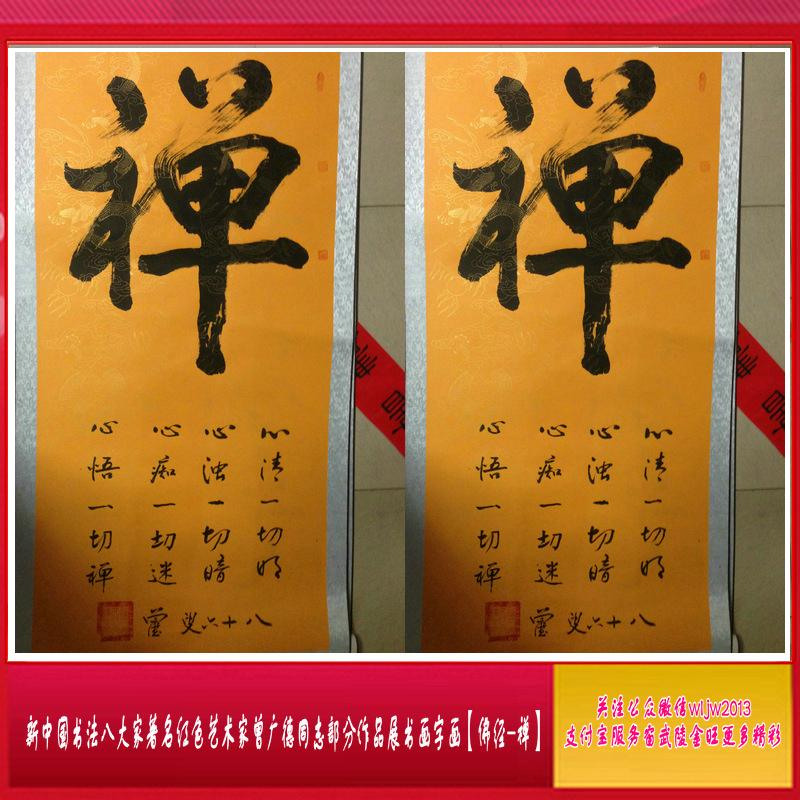 禅
心清一切明
心浊一切暗
心痴一切迷
心悟一切禅
八十六叟
禅
心清一切明
心浊一切暗
心痴一切迷
心悟一切禅
八十六叟
新中国书法八大家著名红色艺术家曾广德同志部分作品展书画字画【佛经-禅】
关注公众微信wljw2013
支付宝服务窗武陵金旺更多精彩